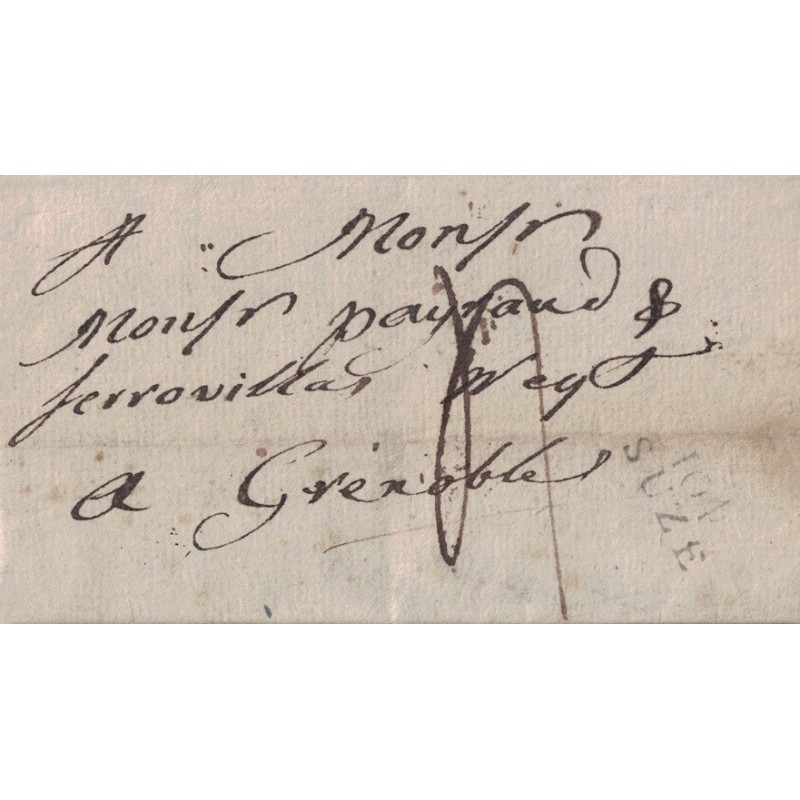 A Monsr
Monsr payraud &
ferrovillas Negt
a Grenoble
104
SUZE